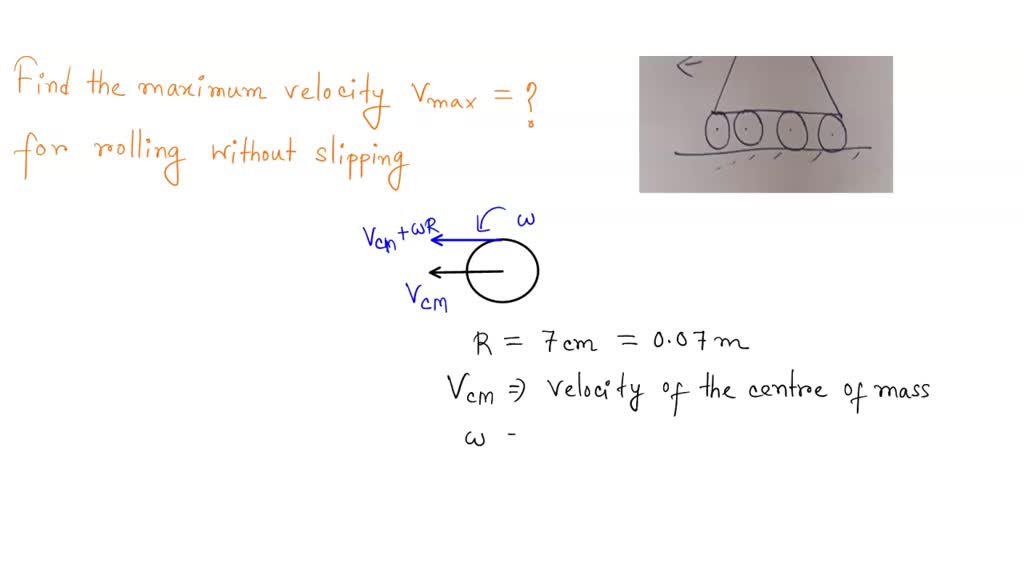 Find the maximum velocity Vmax = ?
for rolling without slipping
ω
Vcm + ωR
VCM
R = 7cm = 0.07m
VCM ⇒ velocity of the centre of mass
ω -